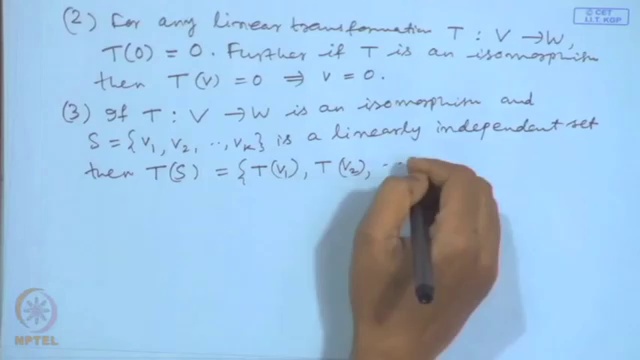 © CET
I.I.T. KGP
(2) For any linear transformation T : V → W,
T(0) = 0. Further if T is an isomorphism
then T(v) = 0 ⟹ v = 0.
(3) If T : V → W is an isomorphism and
S = {v₁, v₂, .., vₖ} is a linearly independent set
then T(S) = {T(v₁), T(v₂), ..
NPTEL